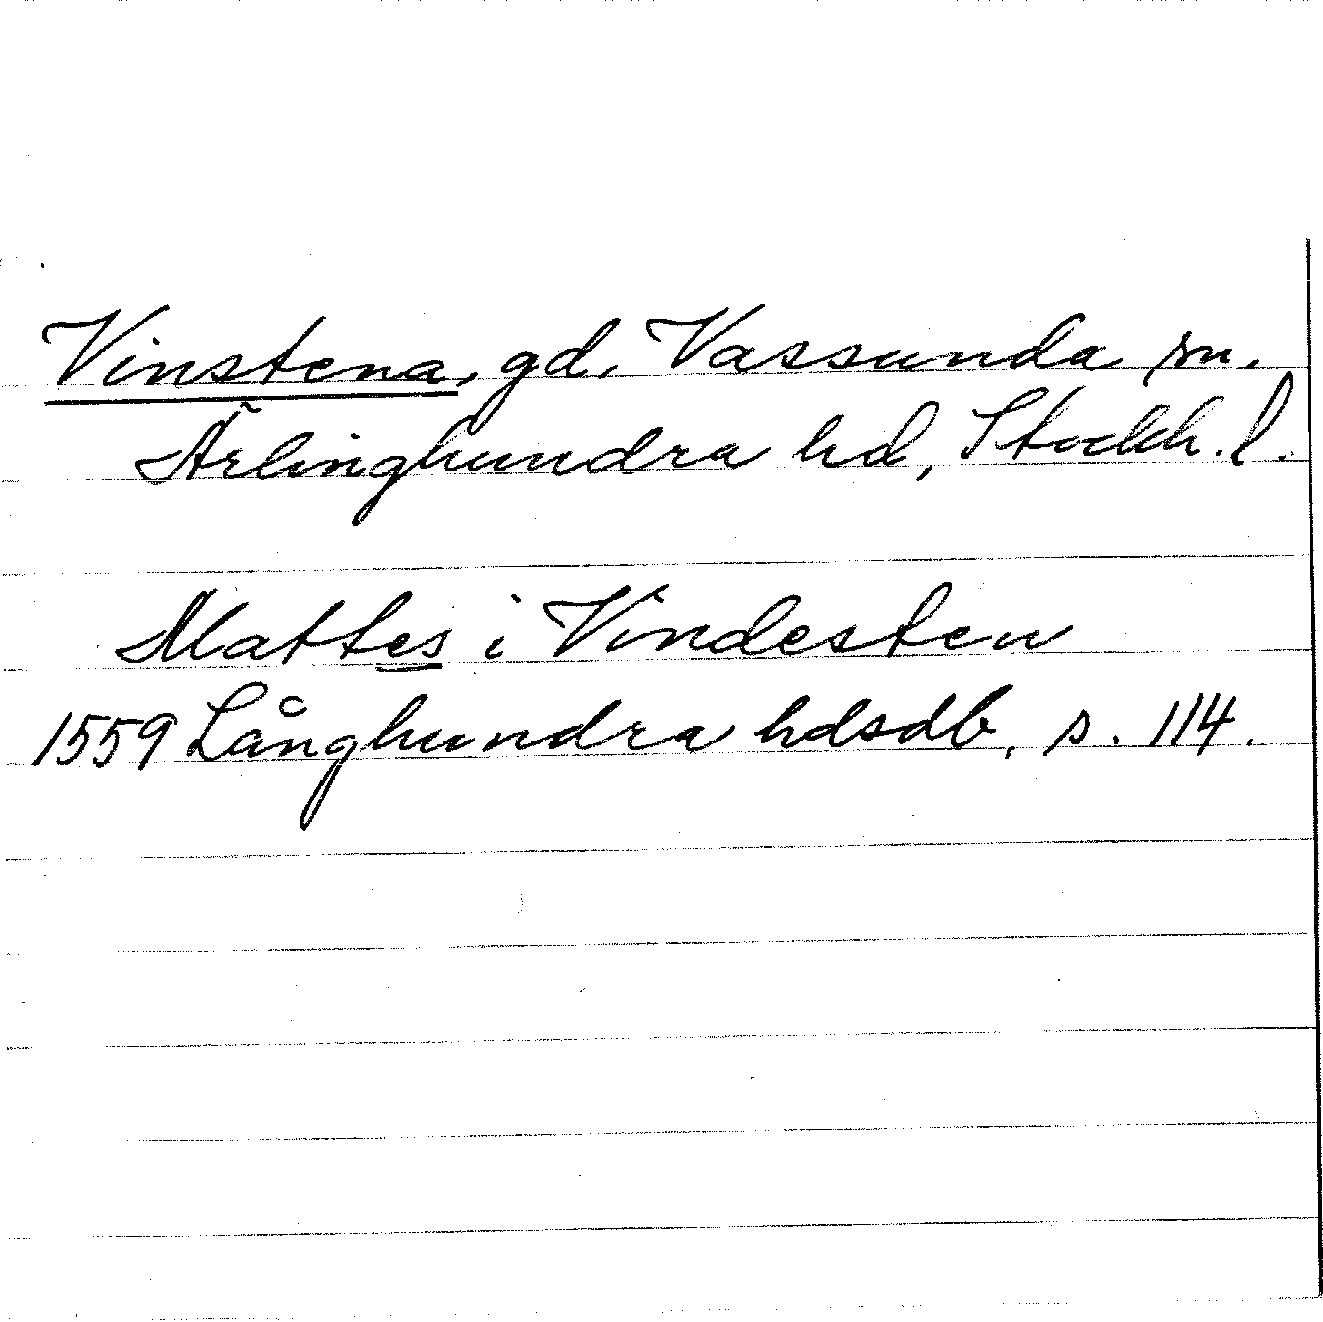 Vinstena, gd, Vassunda sn.
Ärlinghundra hd, Stockh. l.
Mattes i Vindesten
1559 Långhundra hdsdb, s. 114.